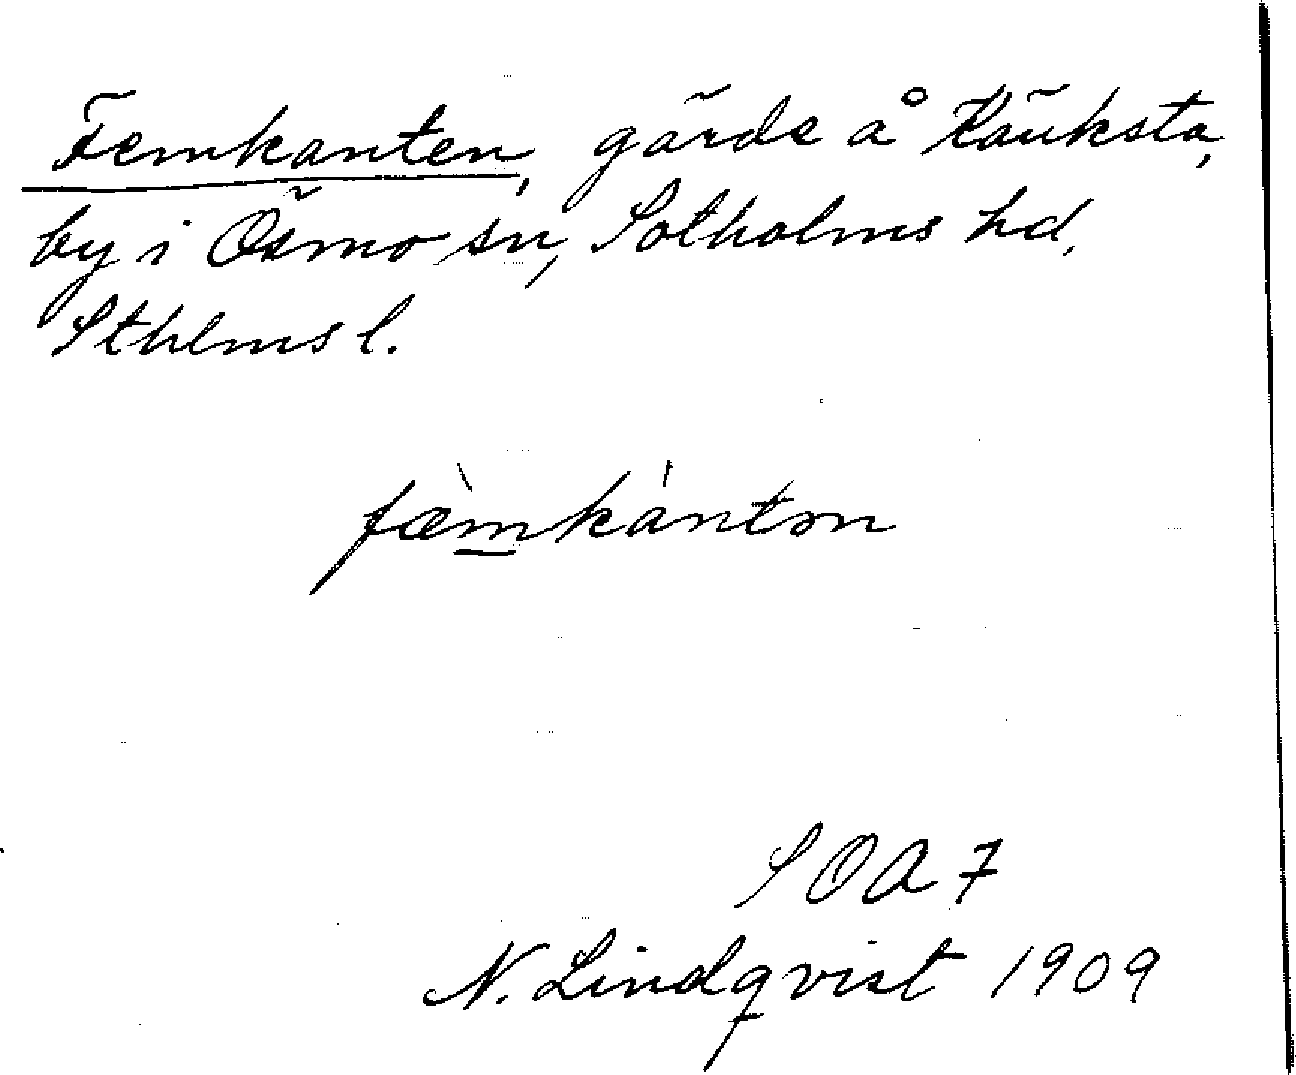 Femkanten, gärde å Käuksta,
by i Ösmo sn, Sotholms hd,
Sthlms l.
fæ̀mkántən
SOA 7
N. Lindqvist 1909